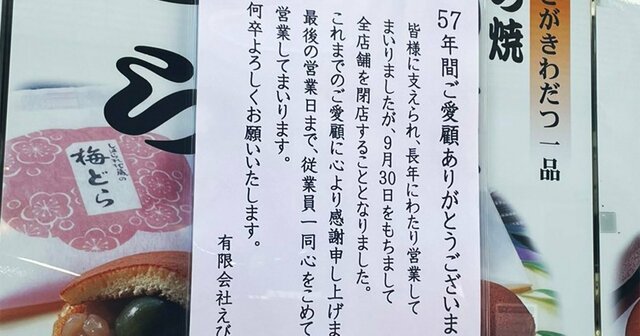 57年間ご愛顧ありがとうございま
皆様に支えられ、長年にわたり営業して
まいりましたが、9月30日をもちまして
全店舗を閉店することとなりました。
これまでのご愛顧に心より感謝申し上げま
最後の営業日まで、従業員一同心をこめて
営業してまいります。
何卒よろしくお願いいたします。
有限会社えび
がきわだつ一品
焼
梅どら